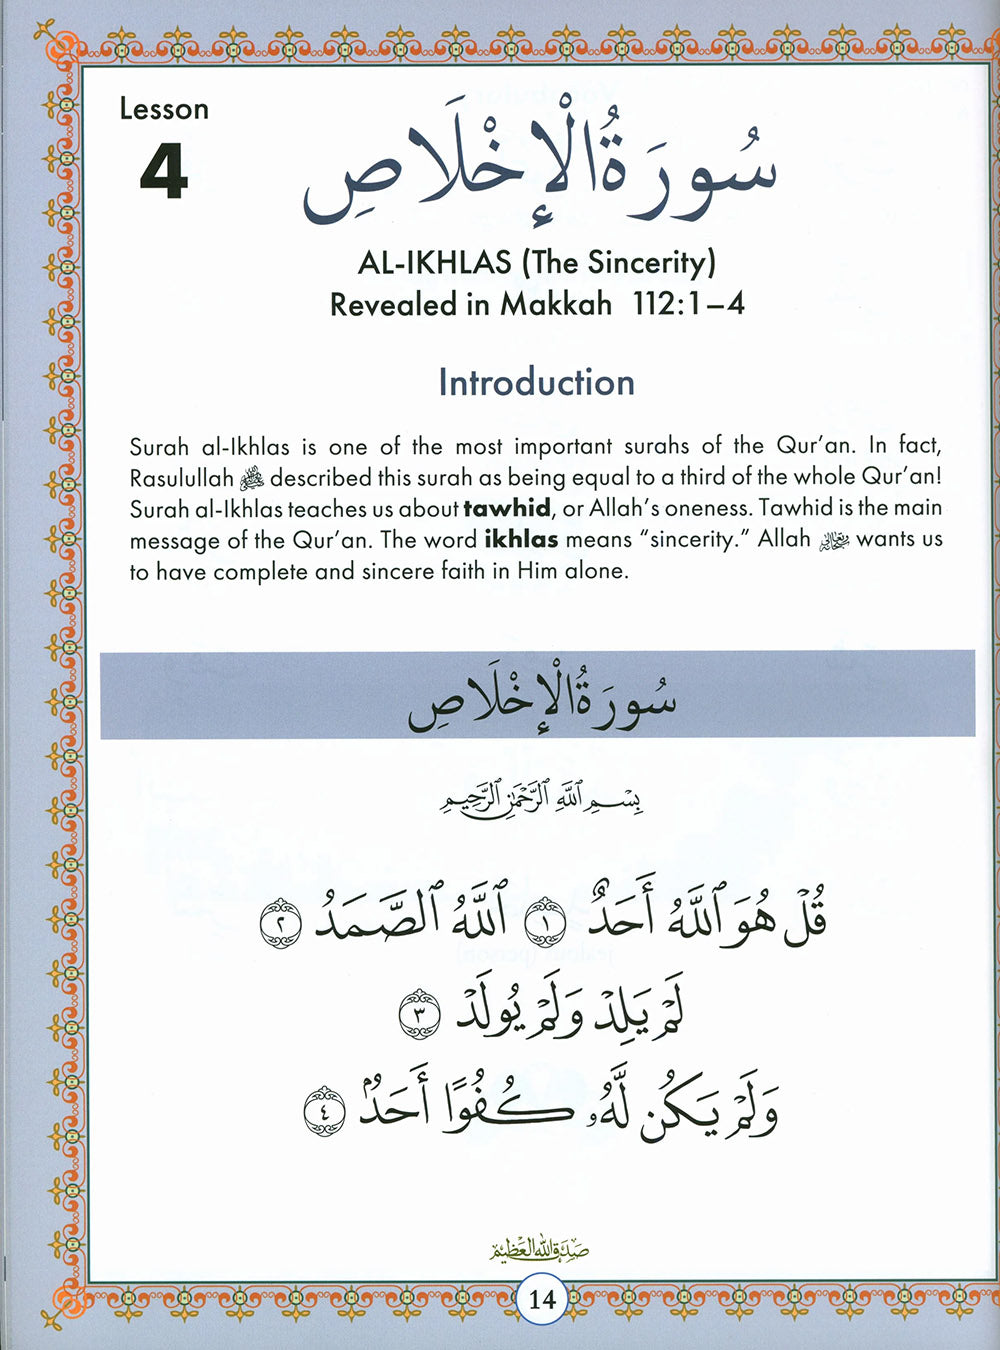 Lesson
4
سُورَةُ الْإِخْلَاصِ
AL-IKHLAS (The Sincerity)
Revealed in Makkah 112:1–4
Introduction
Surah al-Ikhlas is one of the most important surahs of the Qur’an. In fact,
Rasulullah ﷺ described this surah as being equal to a third of the whole Qur’an!
Surah al-Ikhlas teaches us about tawhid, or Allah’s oneness. Tawhid is the main
message of the Qur’an. The word ikhlas means “sincerity.” Allah سبحانه وتعالى wants us
to have complete and sincere faith in Him alone.
سُورَةُ الْإِخْلَاصِ
بِسْمِ ٱللَّهِ ٱلرَّحْمَٰنِ ٱلرَّحِيمِ
قُلْ هُوَ ٱللَّهُ أَحَدٌ ١ ٱللَّهُ ٱلصَّمَدُ ٢
لَمْ يَلِدْ وَلَمْ يُولَدْ ٣
وَلَمْ يَكُن لَّهُۥ كُفُوًا أَحَدٌۢ ٤
صدق الله العظيم
14